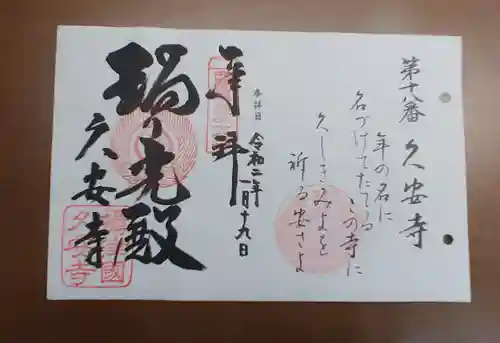 第十八番 久安寺
年の名に
名づけてたてる
この寺に
久しきみよを
祈る安さよ
参拝日
令和二年
一月十九日
奉拝
瑠り光殿
久安寺